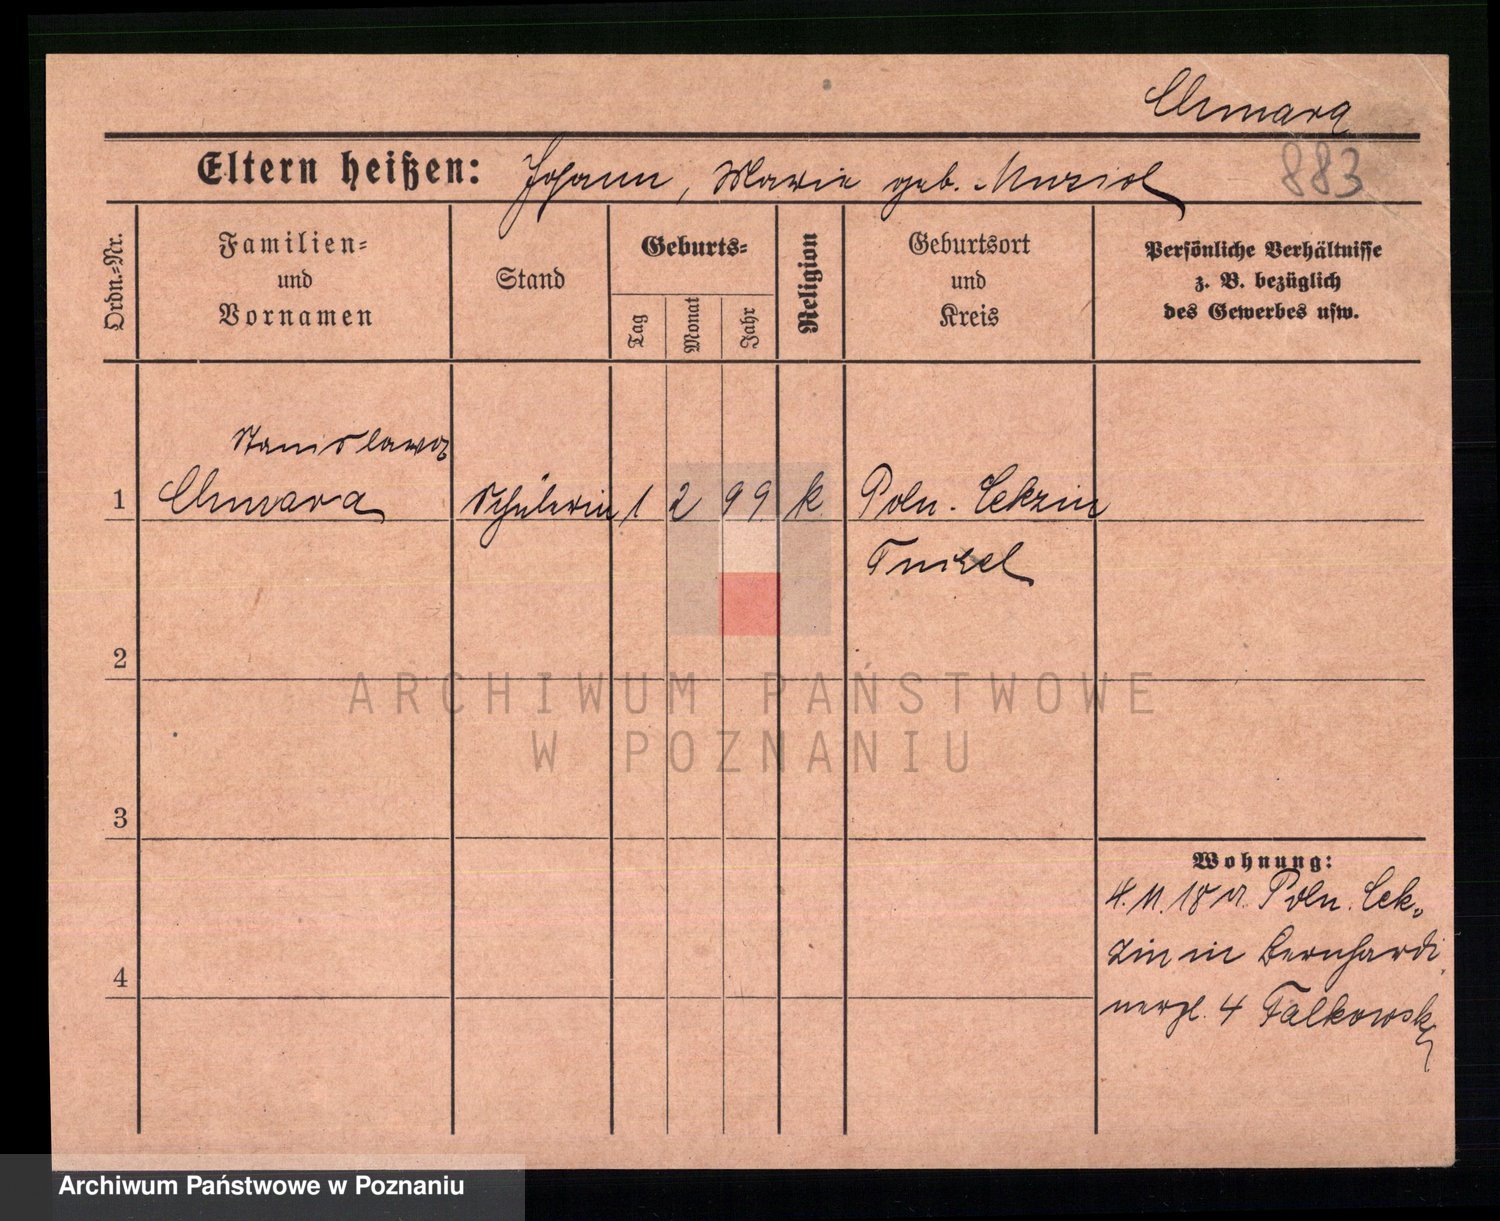 Chmara
883
Eltern heißen: Johann, Marie geb. Muziol
Ordn.=Nr.
Familien=
und
Vornamen
Stand
Geburts=
Tag
Monat
Jahr
Religion
Geburtsort
und
Kreis
Persönliche Verhältnisse
z. B. bezüglich
des Gewerbes usw.
Stanislawa
1 Chmara Schülerin 1 2 99 k Poln. Cekzin
Tuchel
2
3
4
Wohnung:
4. 11. 18 v. Poln. Cek-
zin in Bernhardi
nerpl. 4 Falkowski
ARCHIWUM PAŃSTWOWE
W POZNANIU
Archiwum Państwowe w Poznaniu